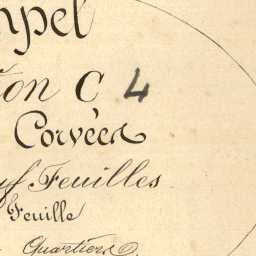 mpel
ion C 4
Corvées
uf Feuilles
Feuille
Quartiers